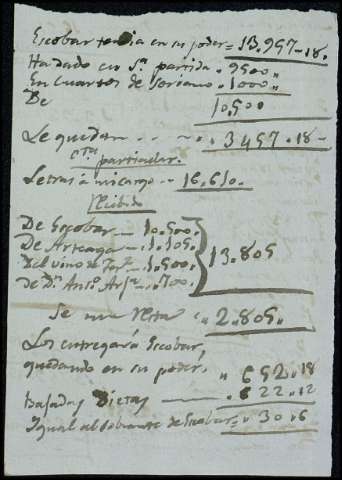 Escobar tenia en su poder = 13.957-18.
Ha dado en 1ª partida . 9500
En cuartos de Soriano . 1000
De 10,500
Le quedan . . . 3457.18-
Cta particular.
Letras á mi cargo - 16.610.
Recibido
De Escobar - 10.500.
De Arteaga - 1.105.
Del vino de - 1.500.
de Dn Anto - .700.
13.805
Se me resta 2.805.
Los entregará Escobar,
quedando en su poder. 652.18
Bajadas Dietas 622.12
Igual al sobrante de Escobar = 30.6